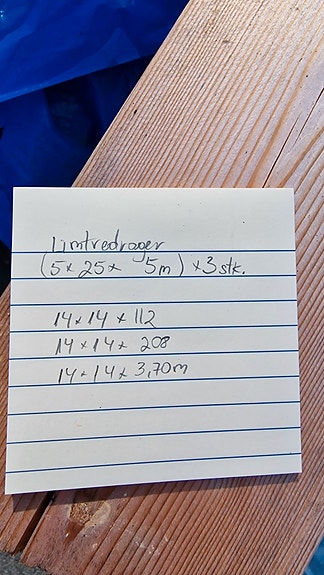 limtredrager
(5x 25x 5m) x3stk.
14x14x112
14x14x 208
14x14x 3,70m